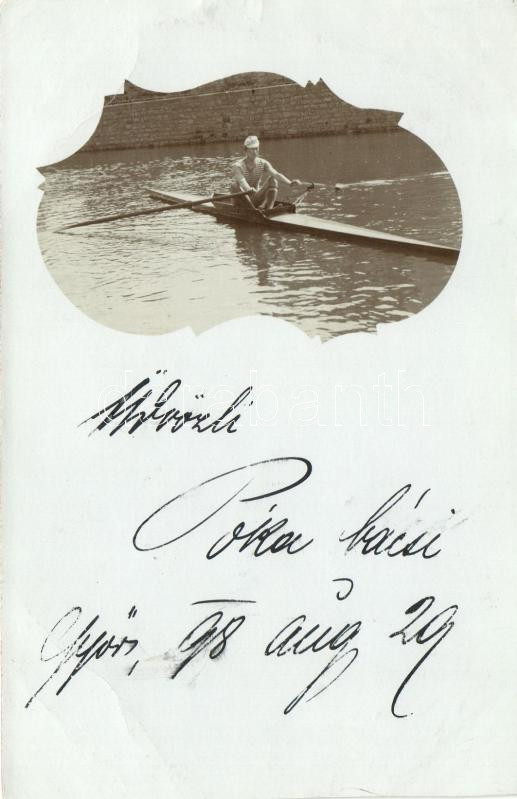 Üdvözli
Póka bácsi
Győr, 98 aug 29